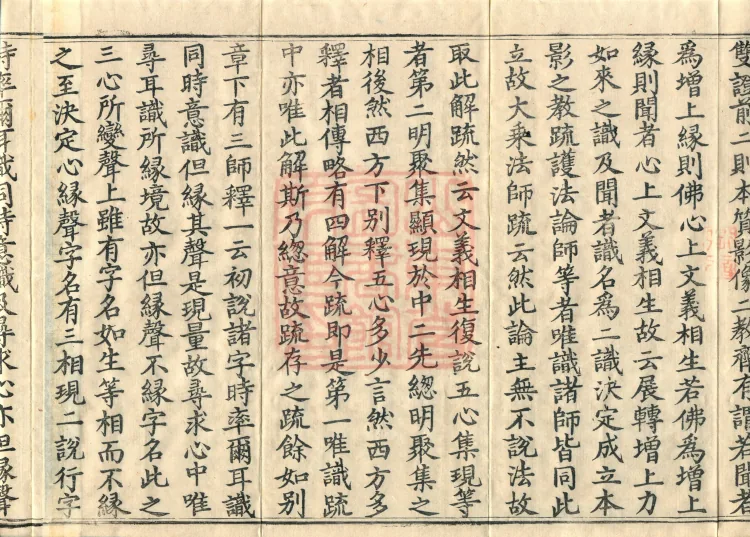 雙護前二則本質影像二教齊有謂若聞者
為增上緣則佛心上文義相生若佛為增上
緣則聞者心上文義相生故云展轉增上力
如來之識及聞者識名為二識決定成立本
影之教疏護法論師等者唯識諸師皆同此
立故大乘法師疏云然此論主無不說法故
取此解疏然云文義相生復說五心集現等
者第二明聚集顯現於中二先緫明聚集之
相後然西方下別釋五心多少言然西方多
釋者相傳略有四解今疏即是第一唯識疏
中亦唯此解斯乃緫意故疏存之疏餘如別
章下有三師釋一云初說諸字時率爾耳識
同時意識但緣其聲是現量故尋求心中唯
尋耳識所緣境故亦但緣聲不緣字名此之
三心所變聲上雖有字名如生等相而不緣
之至決定心緣聲字名有三相現二說行字
時率爾耳識同時意識及尋求心亦但緣聲